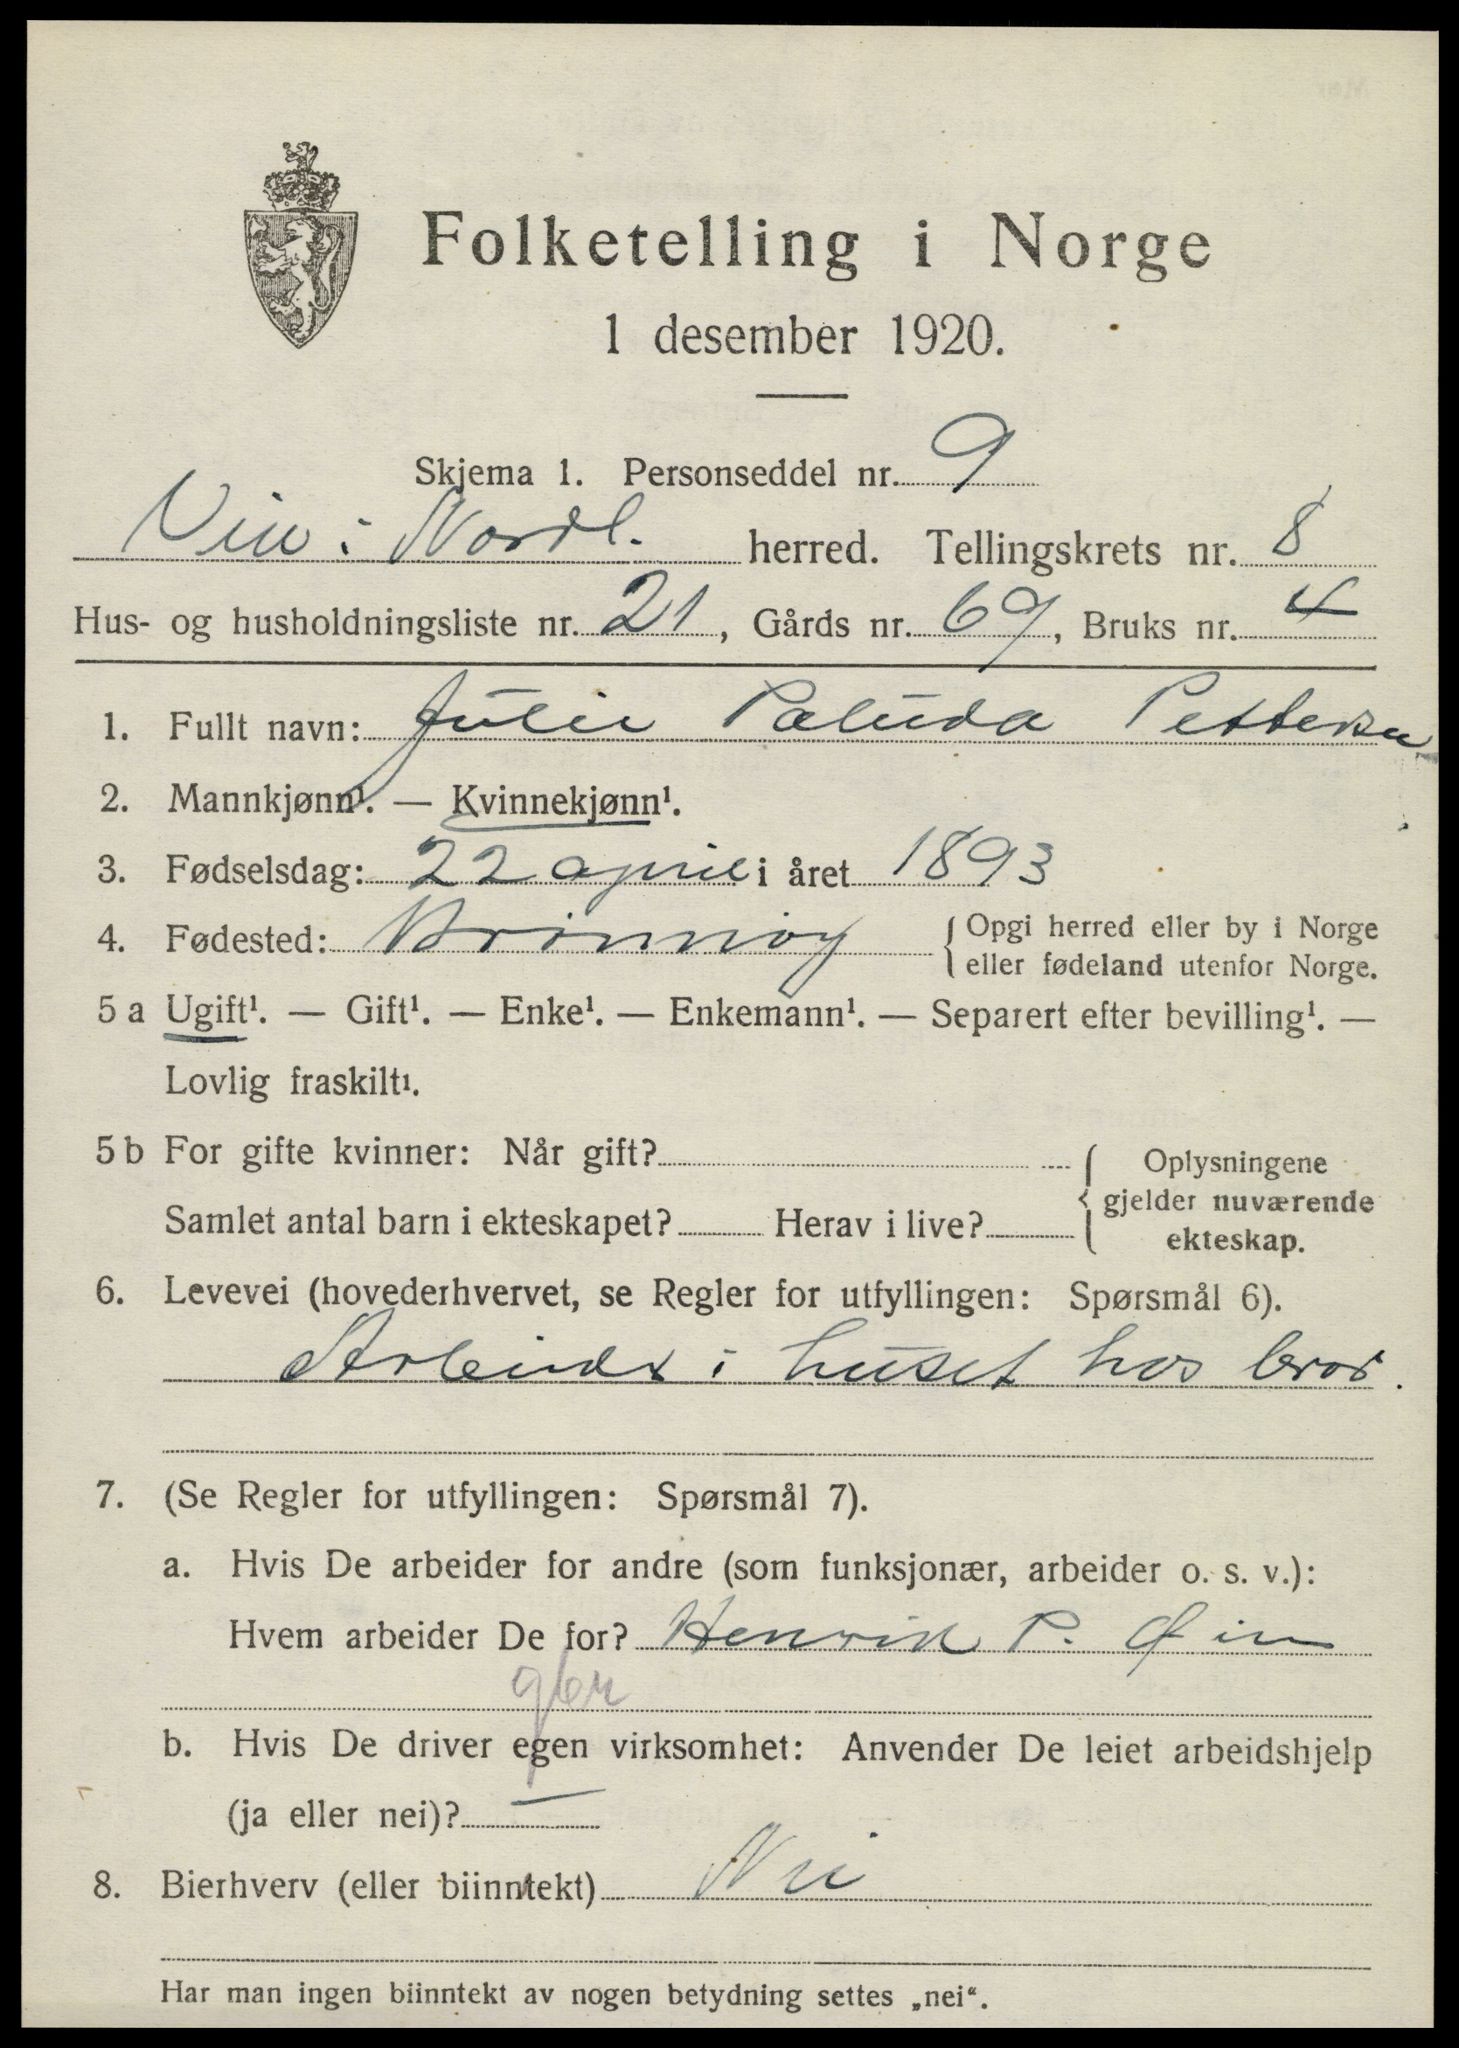 Folketelling i Norge
1 desember 1920.
Skjema 1. Personseddel nr. 9
Vik i Nordl. herred. Tellingskrets nr. 8
Hus- og husholdningsliste nr. 21, Gårds nr. 69, Bruks nr. 4
1. Fullt navn: Julie Paluda Pettersen
2. Mannkjønn¹. — Kvinnekjønn¹.
3. Fødselsdag: 22 april i året 1893
4. Fødested: Brønnøy { Opgi herred eller by i Norge
eller fødeland utenfor Norge.
5 a Ugift¹. — Gift¹. — Enke¹. — Enkemann¹. — Separert efter bevilling¹. —
Lovlig fraskilt¹.
5 b For gifte kvinner: Når gift? { Oplysningene
gjelder nuværende
Samlet antal barn i ekteskapet? Herav i live?
ekteskap.
6. Levevei (hovederhvervet, se Regler for utfyllingen: Spørsmål 6).
Arbeider i huset hos bror.
7. (Se Regler for utfyllingen: Spørsmål 7).
a. Hvis De arbeider for andre (som funksjonær, arbeider o. s. v.):
Hvem arbeider De for? Henrik P.
b. Hvis De driver egen virksomhet: Anvender De leiet arbeidshjelp
(ja eller nei)? —
8. Bierhverv (eller biinntekt) Nei
Har man ingen biinntekt av nogen betydning settes „nei“.